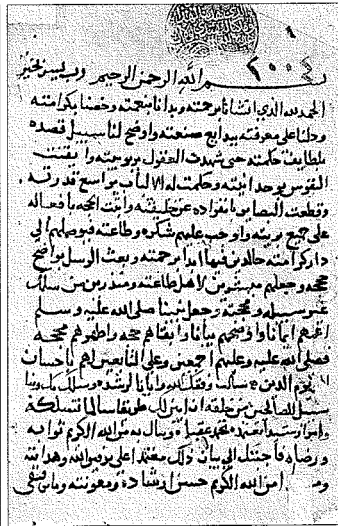 ٢٠٠٤
بسم الله الرحمن الرحيم وب
الحمد لله الذي انشانا برحمته وبدانا بنعمته وخصنا بكرامته
ودلنا على معرفته ببدايع صنعته واوضح لنا سبيل قصده
بلطايف حكمته حتى شهدت العقول بربوبيته وايقنت
النفوس بوحدانيته وحكمت له الالباب بواسع قدرته
وقطعت البصاير بانفراده عن خليقته واثبت الحجه بافعاله
على جميع بريته واوجب عليهم شكره وطاعته فيوصلهم الى
دار كرامته خالدين فيها ابدا برحمته وبعث الرسل بواضح
حججه وجعلهم مبشرين لاهل طاعته ومنذرين من سلك
غير سبيله ومحجته وجعل نبينا صلى الله عليه وسلم
اعمهم ايمانا واوضحهم بيانا وابقاهم حجه واظهرهم محجه
فصلى الله عليه وعليهم اجمعين وعلى التابعين لهم باحسان
الى يوم الدين سالت وفقك الله وايانا لرشده وسلك بك وبنا
سبيل الصالحين من خلقه ان ابين لك طريقا سالما تسلكه
وامرا رشيدا تعتقده وينال به من الله الكريم ثوابه
ورضاه فاجبتك الى بيان ذلك معتمدا على توفيق الله وهدايته
ومن الله الكريم حسن ارشاده ومعونته وما توفيقي